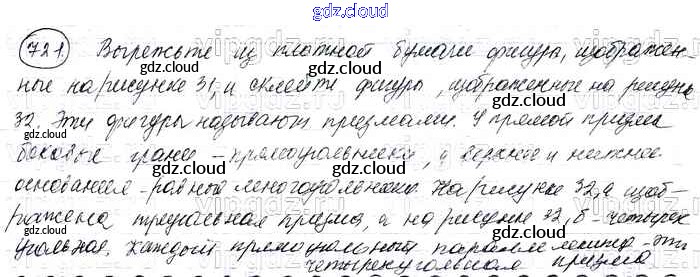 gdz.cloud
721. Вырежьте из плотной бумаги фигуры, изображен-
ные на рисунке 31, и склейте фигуры, изображенные на рисунке
32. Эти фигуры называют призмами. У прямой призмы
боковые грани - прямоугольники, а верхнее и нижнее
основания - равные многоугольники. На рисунке 32,а изоб-
ражена треугольная призма, а на рисунке 32,б - четырех-
угольная. Каждый прямоугольный параллелепипед - это
четырехугольная призма
gdz.cloud gdz.cloud gdz.cloud
gdz.cloud gdz.cloud gdz.cloud
gdz.cloud gdz.cloud gdz.cloud
gdz.cloud gdz.cloud gdz.cloud
gdz.cloud gdz.cloud gdz.cloud